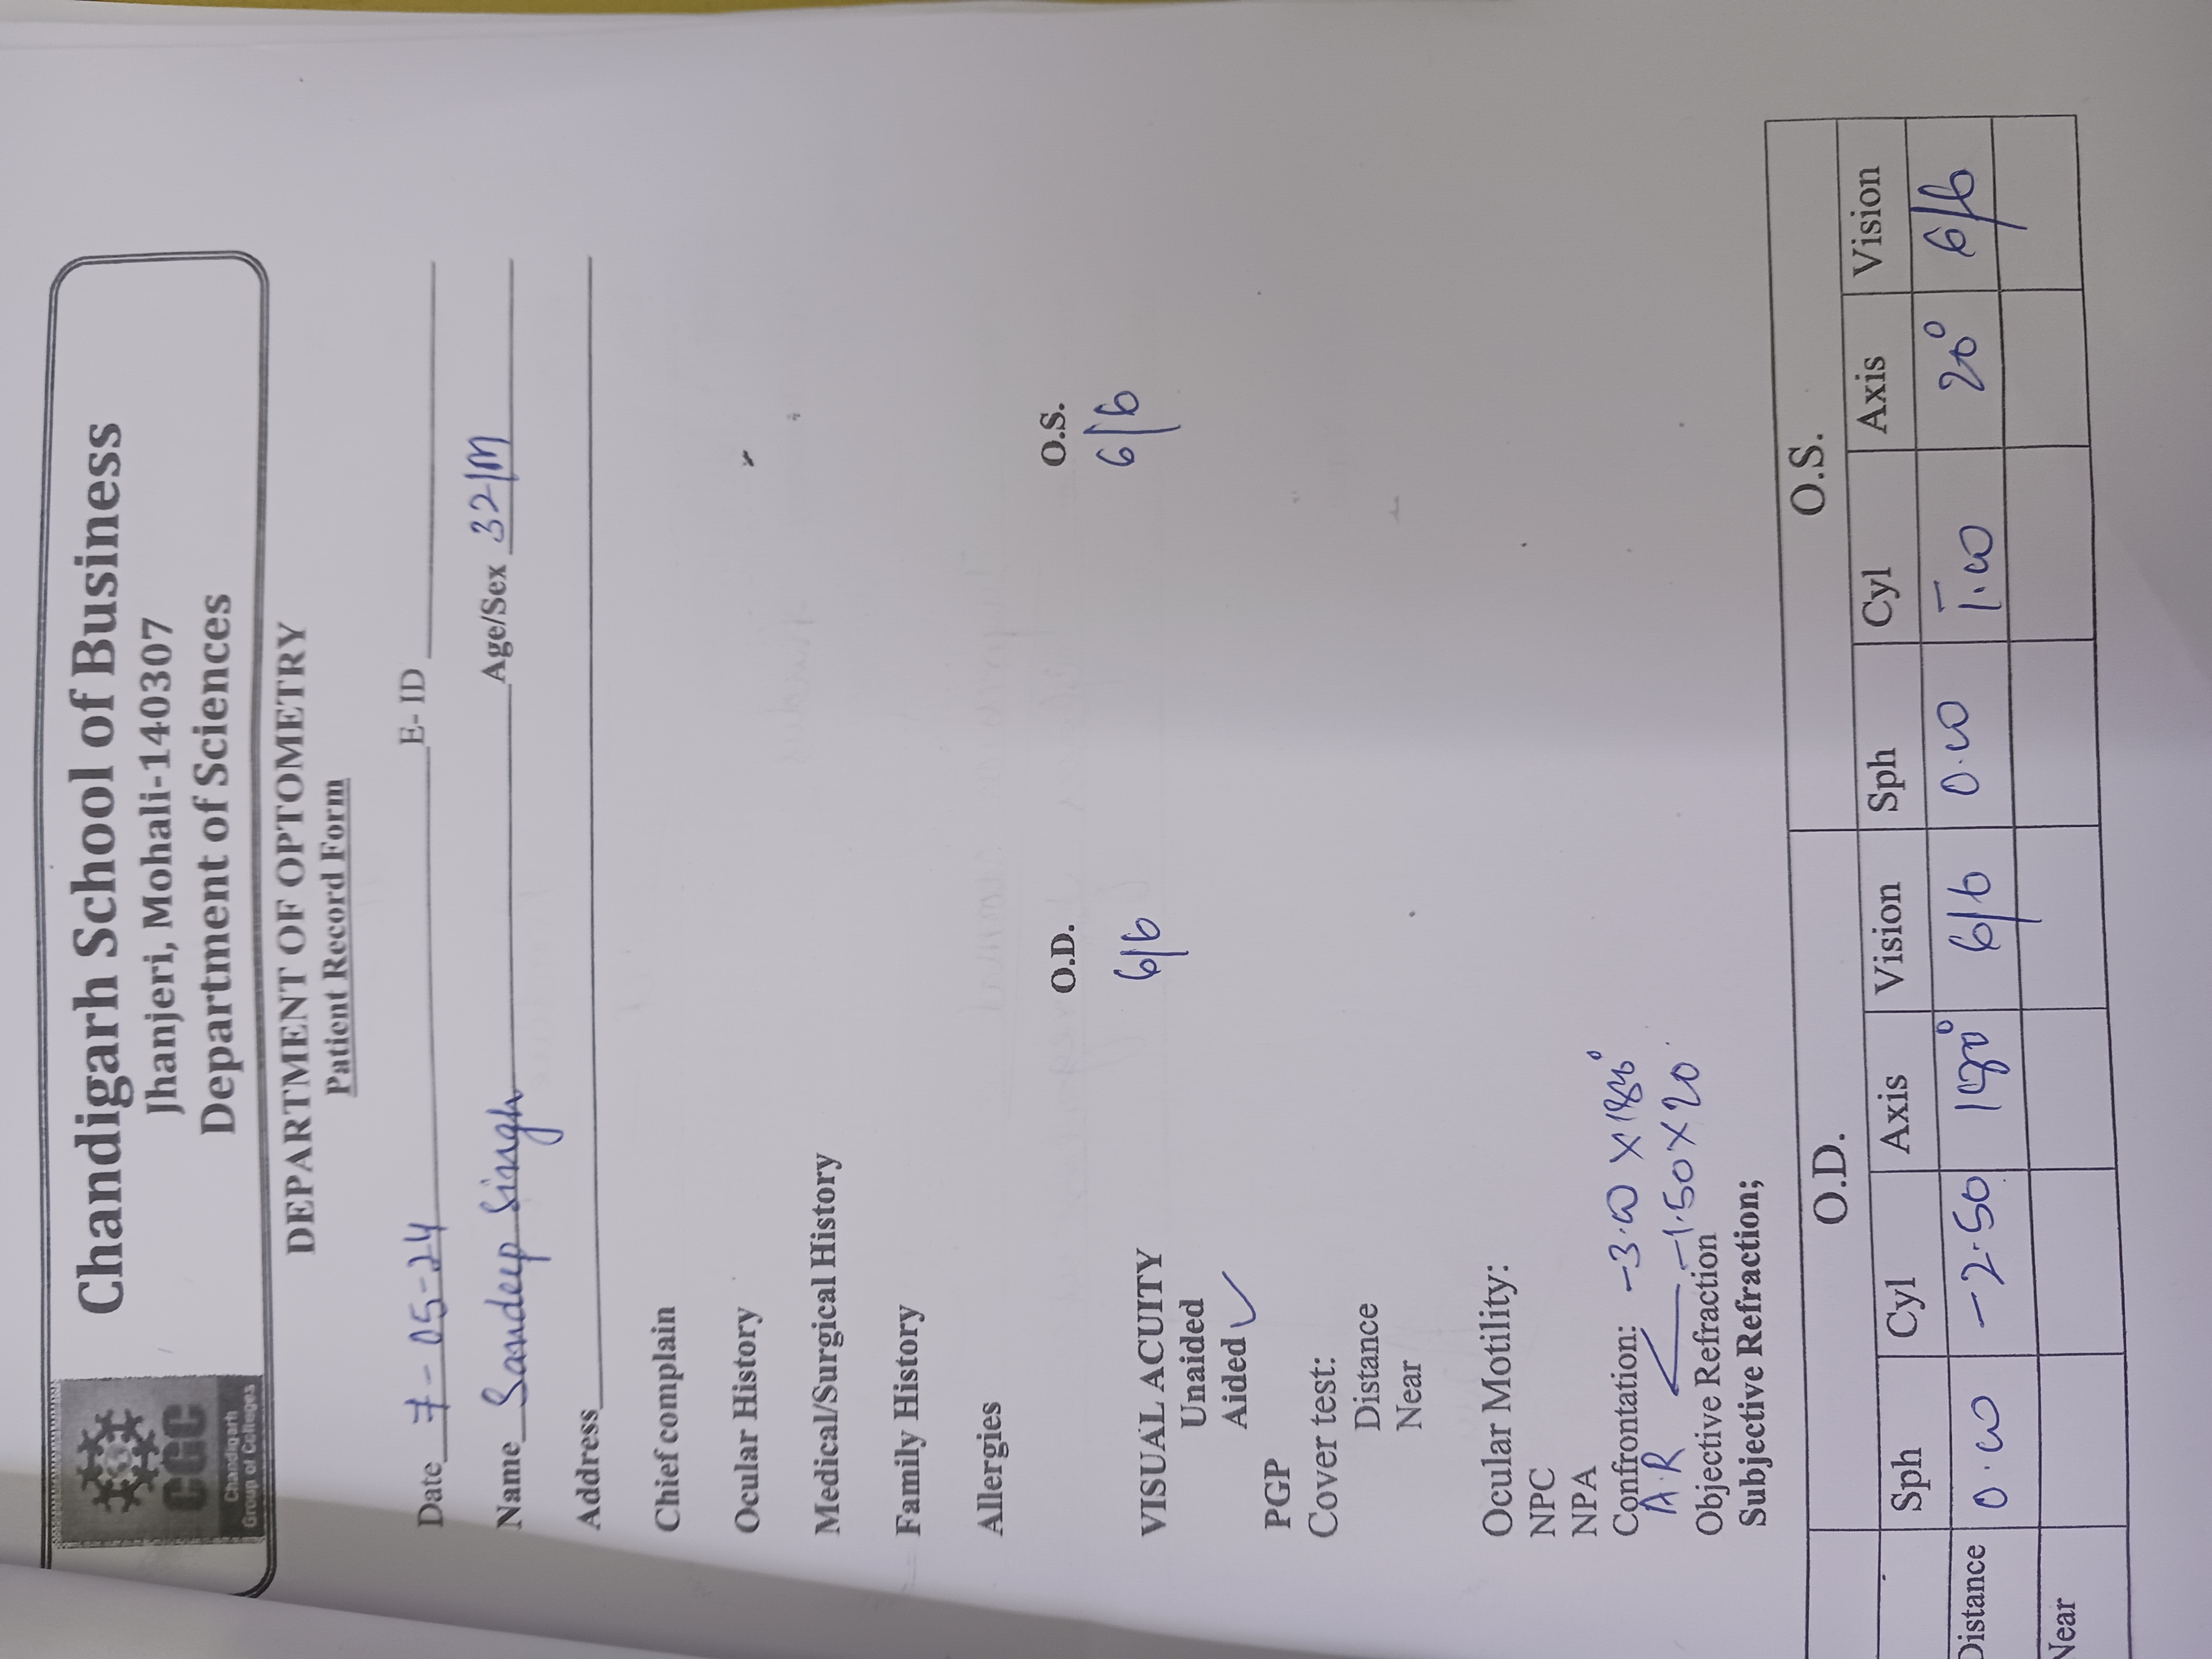 CGC
Chandigarh
Group of Colleges
Chandigarh School of Business
Jhanjeri, Mohali-140307
Department of Sciences
DEPARTMENT OF OPTOMETRY
Patient Record Form
Date 7-05-24 E- ID
Name Sandeep Singh Age/Sex 32/M
Address
Chief complain
Ocular History
Medical/Surgical History
Family History
Allergies
O.D. O.S.
VISUAL ACUITY 6/6 6/6
Unaided
Aided ✓
PGP
Cover test:
Distance
Near
Ocular Motility:
NPC
NPA
Confrontation: -3.00 X 180°
A.R < -1.50 X 20
Objective Refraction
Subjective Refraction;
O.D. O.S.
Sph Cyl Axis Vision Sph Cyl Axis Vision
Distance 0.00 -2.50 180° 6/6 0.00 -1.00 20° 6/6
Near